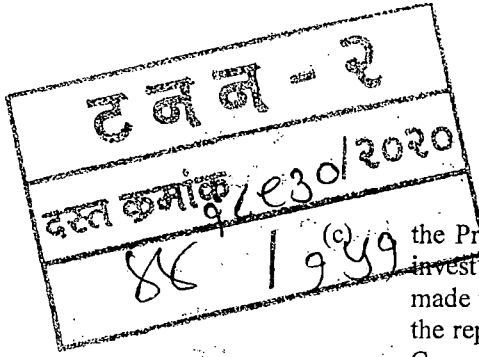 ट न न - २
दस्त क्रमांक १८९३०/२०२०
/ १५१
(c) the Pr
invest
made
the rep